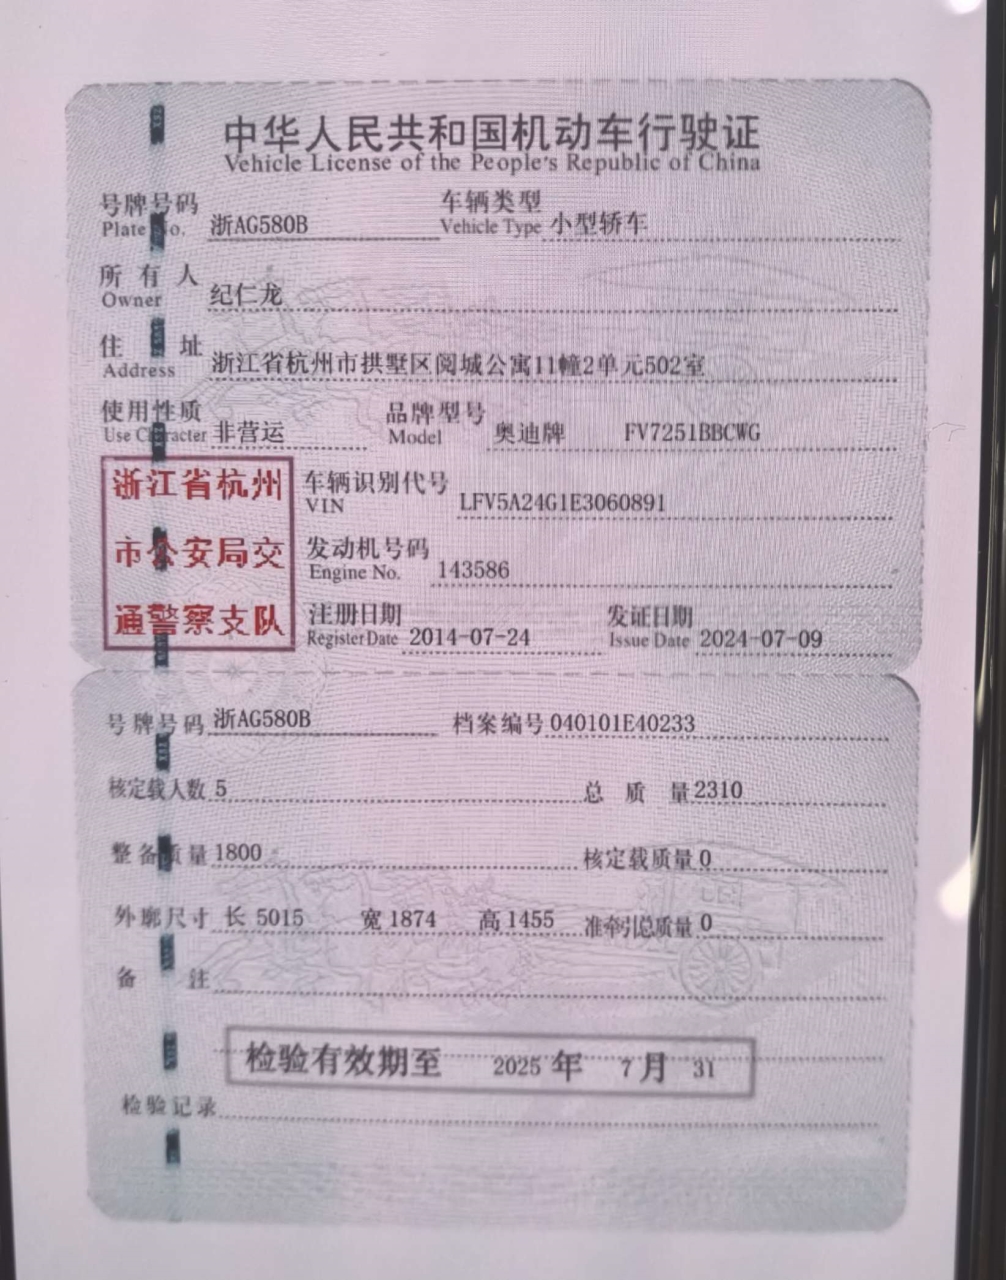 中华人民共和国机动车行驶证
Vehicle License of the People's Republic of China
号牌号码 浙AG580B 车辆类型 小型轿车
Plate No. Vehicle Type
所有人 纪仁龙
Owner
住址 浙江省杭州市拱墅区阅城公寓11幢2单元502室
Address
使用性质 非营运 品牌型号 奥迪牌 FV7251BBCWG
Use Character Model
浙江省杭州
市公安局交
通警察支队
车辆识别代号 LFV5A24G1E3060891
VIN
发动机号码 143586
Engine No.
注册日期 2014-07-24 发证日期 2024-07-09
Register Date Issue Date
号牌号码 浙AG580B 档案编号 040101E40233
核定载人数 5 总质量 2310
整备质量 1800 核定载质量 0
外廓尺寸 长 5015 宽 1874 高 1455 准牵引总质量 0
备注
检验有效期至 2025 年 7 月 31
检验记录